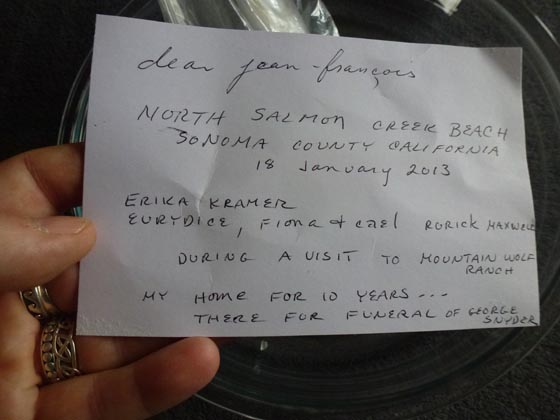 dear jean-françois
NORTH SALMON CREEK BEACH
SONOMA COUNTY CALIFORNIA
18 January 2013
ERIKA KRAMER
EURYDICE, Fiona & cael RORICK MAXWELL
DURING A VISIT TO MOUNTAIN WOLF
RANCH
MY HOME FOR 10 YEARS...
THERE FUR FUNERAL OF GEORGE
SNYDER